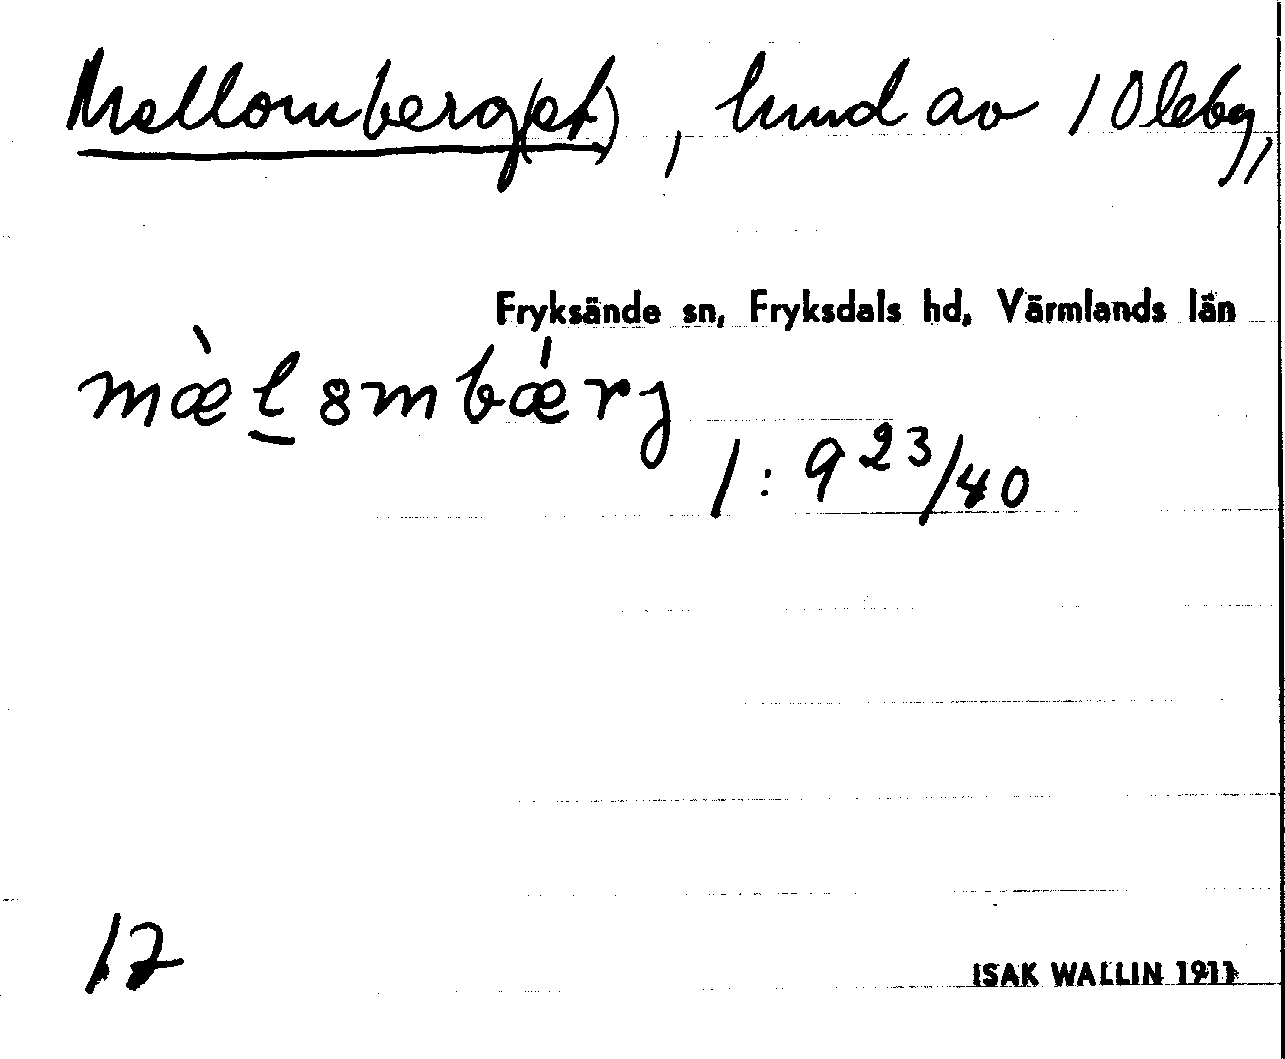 Mellomberg(et), hmd av 1 Oleby,
Fryksände sn, Fryksdals hd, Värmlands län
mæ̀l̠ȣmbǽrj
1:9 23/40
12
ISAK WALLIN 1911